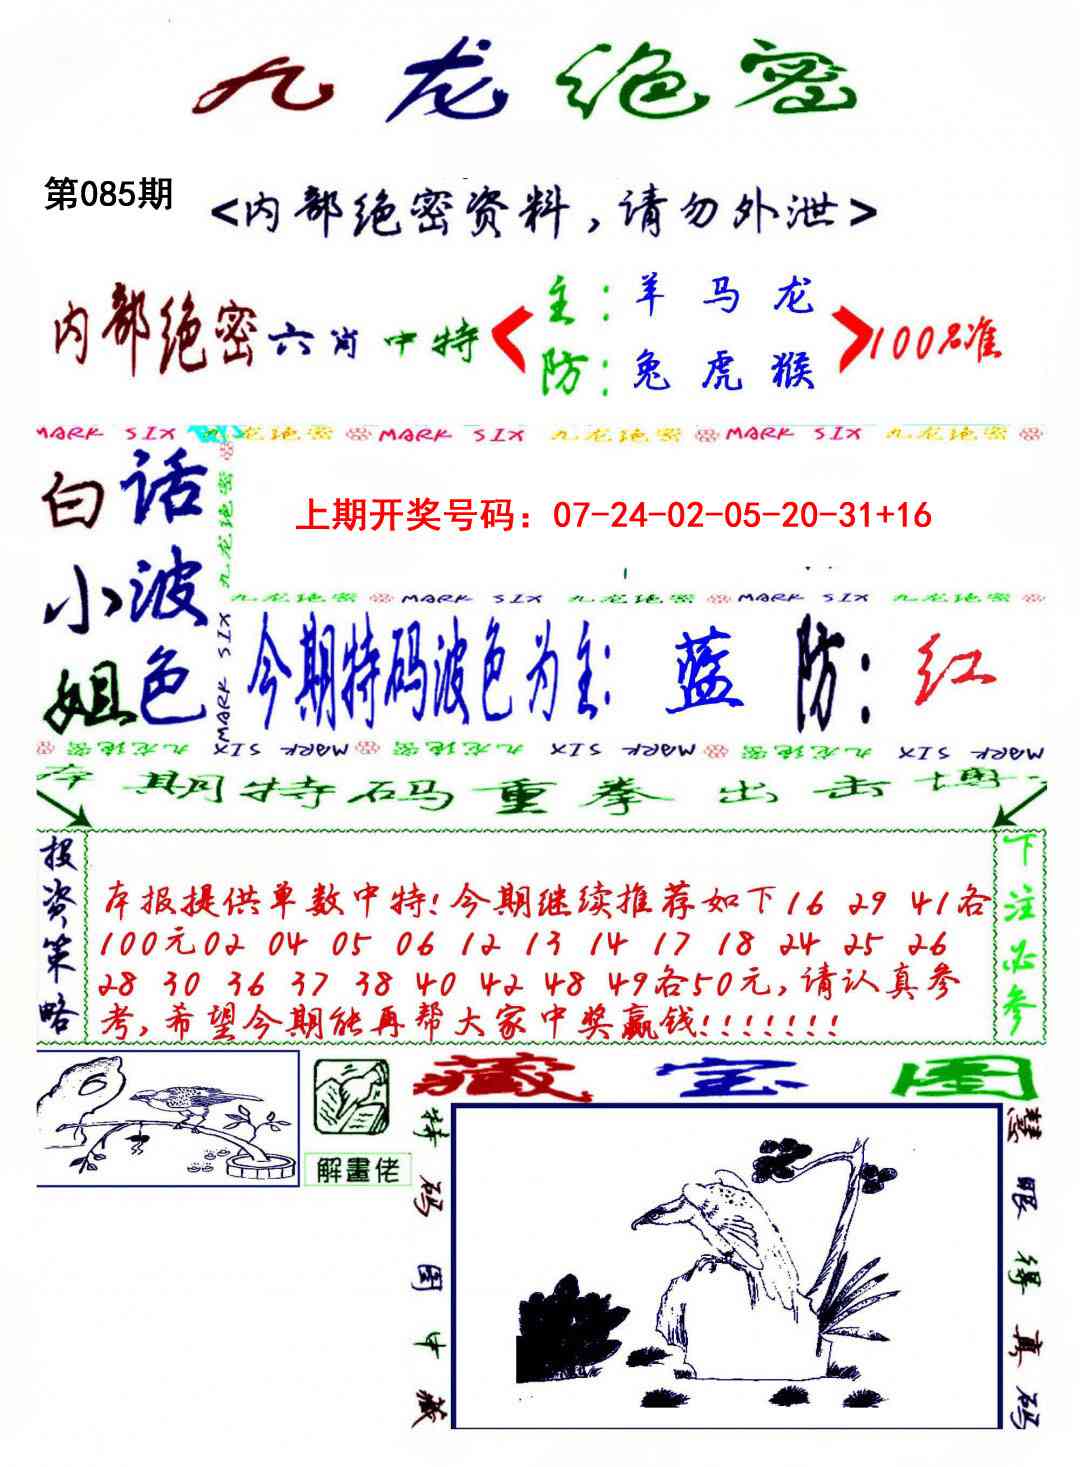 九龙绝密
第085期
<内部绝密资料,请勿外泄>
内部绝密六肖中特
主:羊马龙
防:兔虎猴
100%准
MARK SIX 九龙绝密 MARK SIX 九龙绝密 MARK SIX 九龙绝密
白小姐
话波色
九龙绝密
MARK SIX
上期开奖号码：07-24-02-05-20-31+16
九龙绝密 MARK SIX 九龙绝密 MARK SIX 九龙绝密
今期特码波色为主:蓝 防:红
MARK SIX 九龙绝密 MARK SIX 九龙绝密 MARK SIX 九龙绝密
本期特码重拳出击博
投资策略
本报提供单数中特!今期继续推荐如下16 29 41各
100元02 04 05 06 12 13 14 17 18 24 25 26
28 30 36 37 38 40 42 48 49各50元,请认真参
考,希望今期能再帮大家中奖赢钱!!!!!!!
下注必参
解畫佬
藏宝图
特码图中藏
慧眼得真码